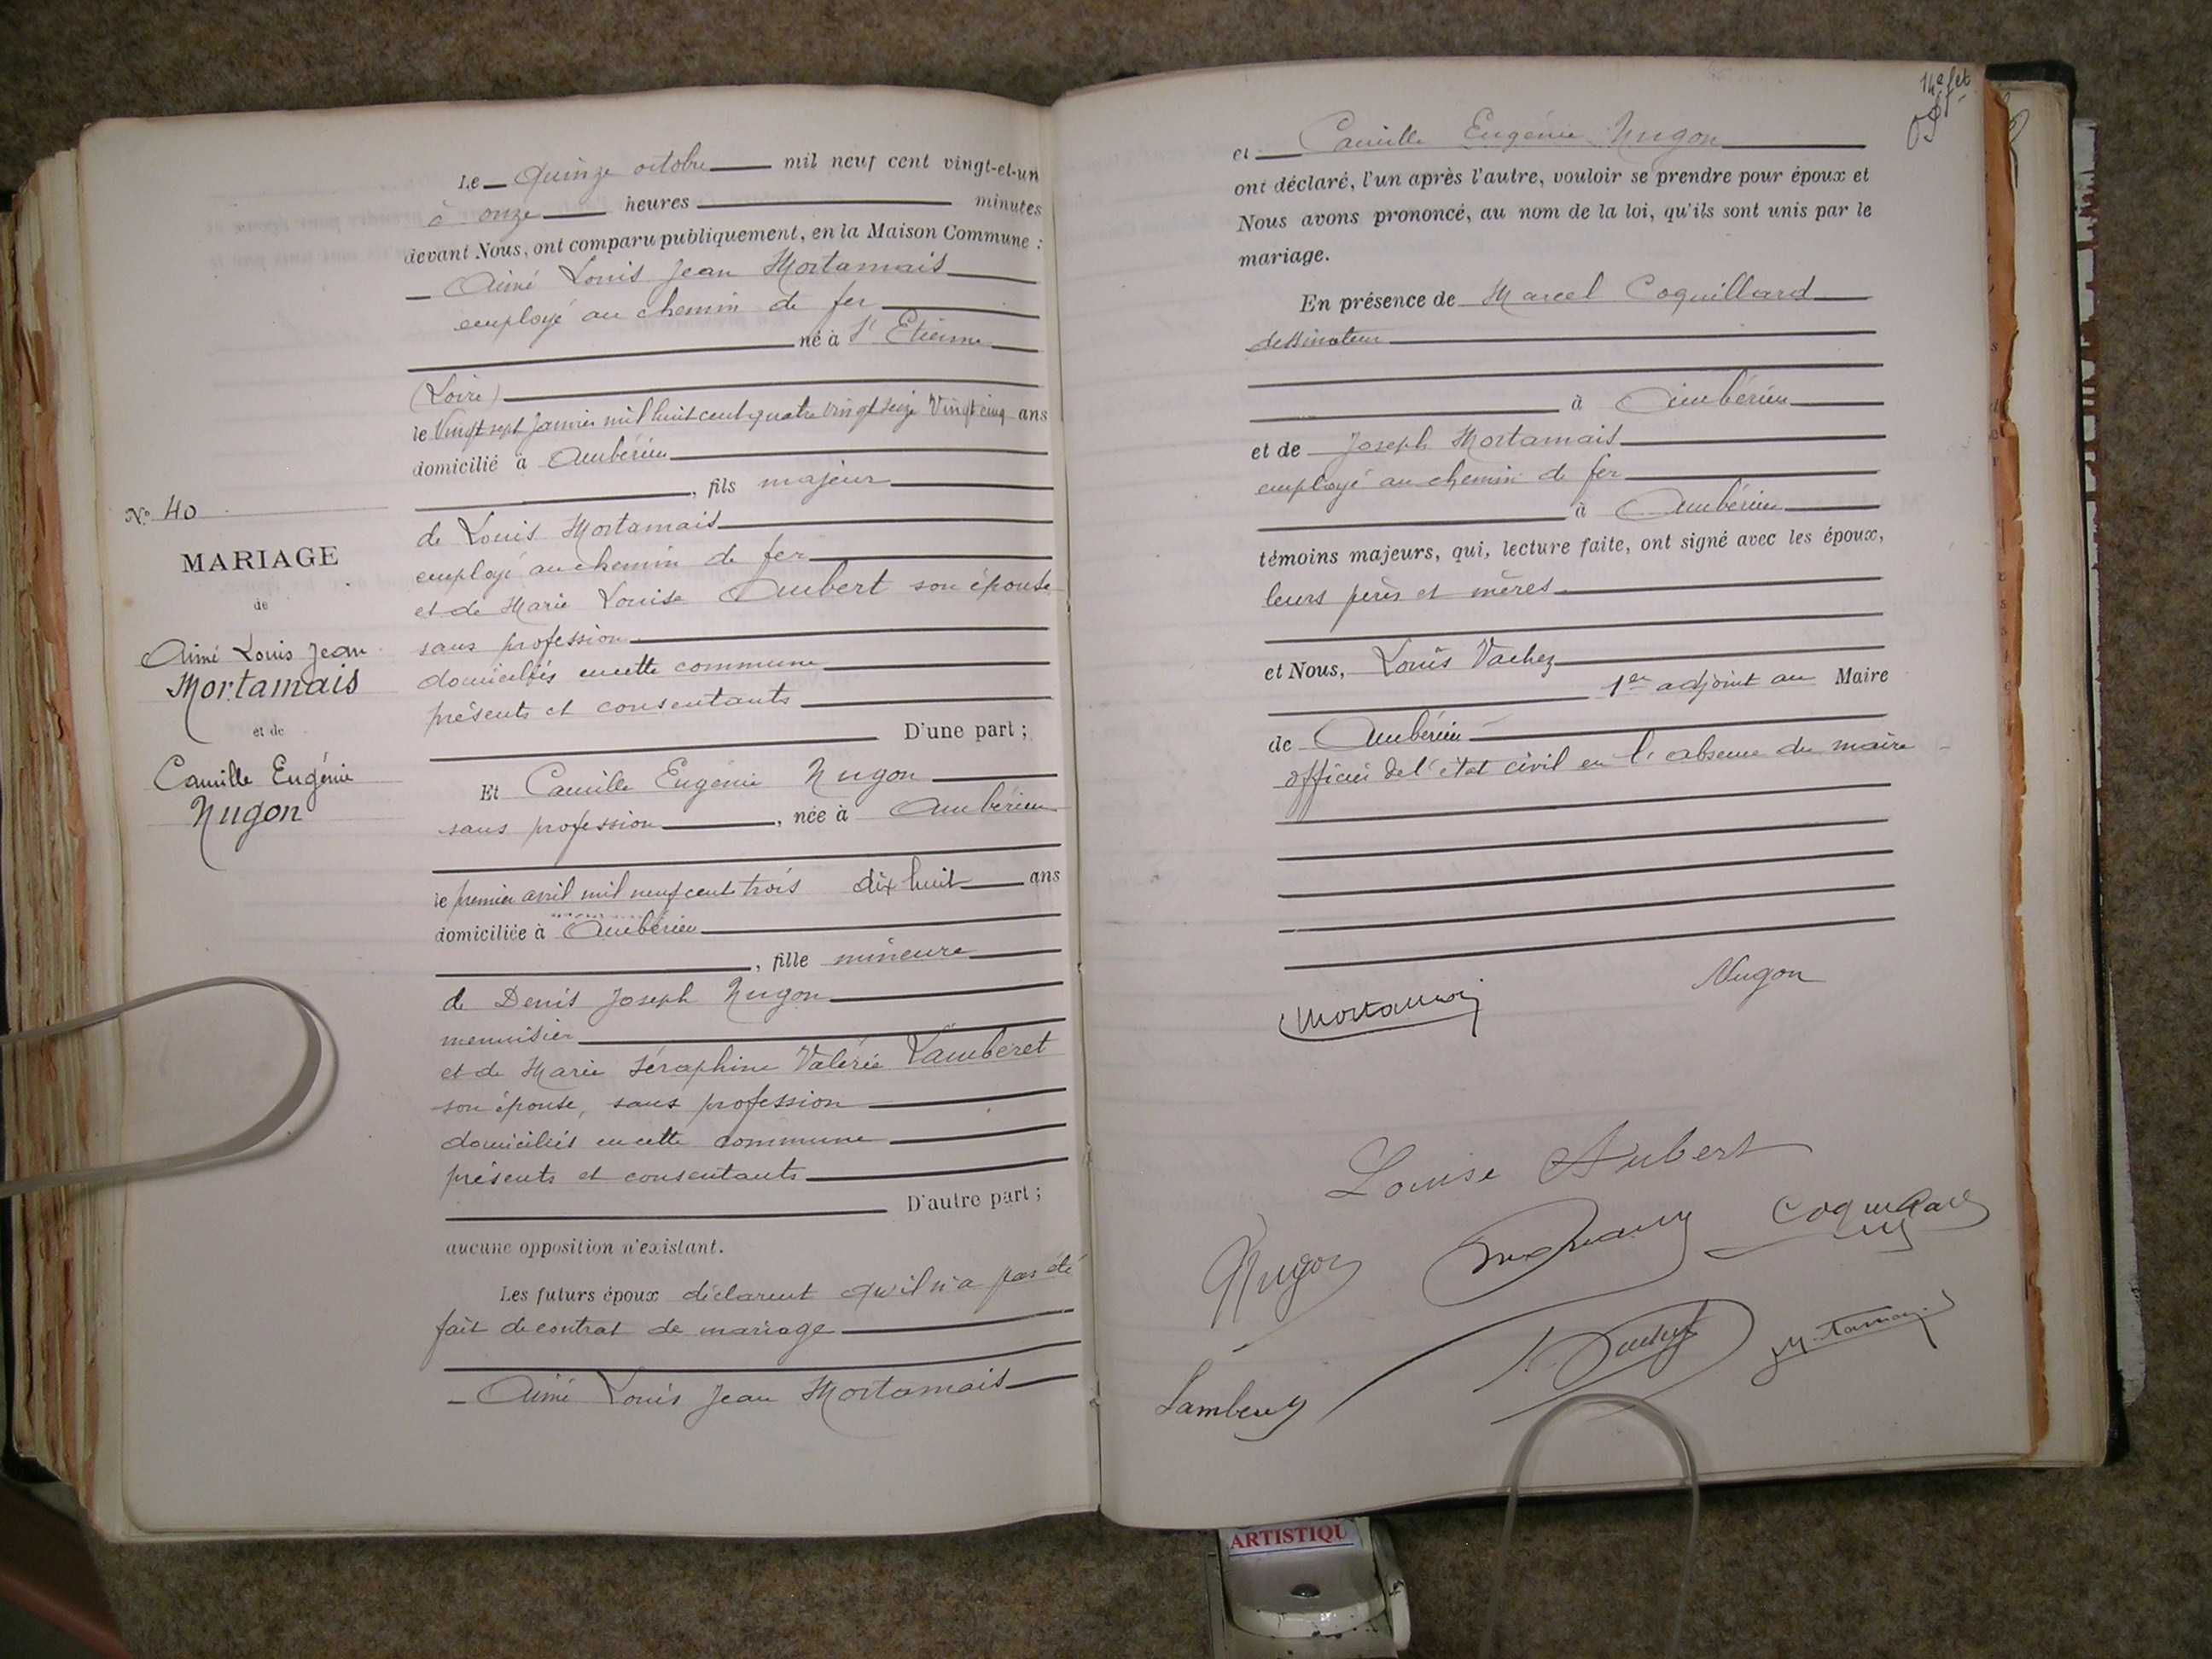 N° 40
MARIAGE
de
Aimé Louis Jean
Mortamais
et de
Camille Eugénie
Nugon
Le quinze octobre mil neuf cent vingt-et-un
à onze heures minutes
devant Nous, ont comparu publiquement, en la Maison Commune :
Aimé Louis Jean Mortamais
employé au chemin de fer
né à St Etienne
(Loire)
le Vingt sept Janvier mil huit cent quatre vingt seize Vingt cinq ans
domicilié à Ambérieu
, fils majeur
de Louis Mortamais
employé au chemin de fer
et de Marie Louise Aubert son épouse
sans profession
domiciliés en cette commune
présents et consentants
D'une part ;
Et Camille Eugénie Nugon
sans profession, née à Ambérieu
le premier avril mil neuf cent trois dix huit ans
domiciliée à Ambérieu
, fille mineure
de Denis Joseph Nugon
menuisier
et de Marie Séraphine Valérie Lamberet
son épouse, sans profession
domiciliés en cette commune
présents et consentants
D'autre part ;
aucune opposition n'existant.
Les futurs époux déclarent qu'il n'a pas été
fait de contrat de mariage
Aimé Louis Jean Mortamais
14e fet
et Camille Eugénie Nugon
ont déclaré, l'un après l'autre, vouloir se prendre pour époux et
Nous avons prononcé, au nom de la loi, qu'ils sont unis par le
mariage.
En présence de Marcel Coquillard
dessinateur
à Ambérieu
et de Joseph Mortamais
employé au chemin de fer
à Ambérieu
témoins majeurs, qui, lecture faite, ont signé avec les époux,
leurs pères et mères
et Nous, Louis Vachez
1er adjoint au Maire
de Ambérieu
officier de l'état civil en l'absence du maire
Mortamais
Nugon
Louise Aubert
Nugon
Coquillard
Mortamais
Lamberet
ARTISTIQU